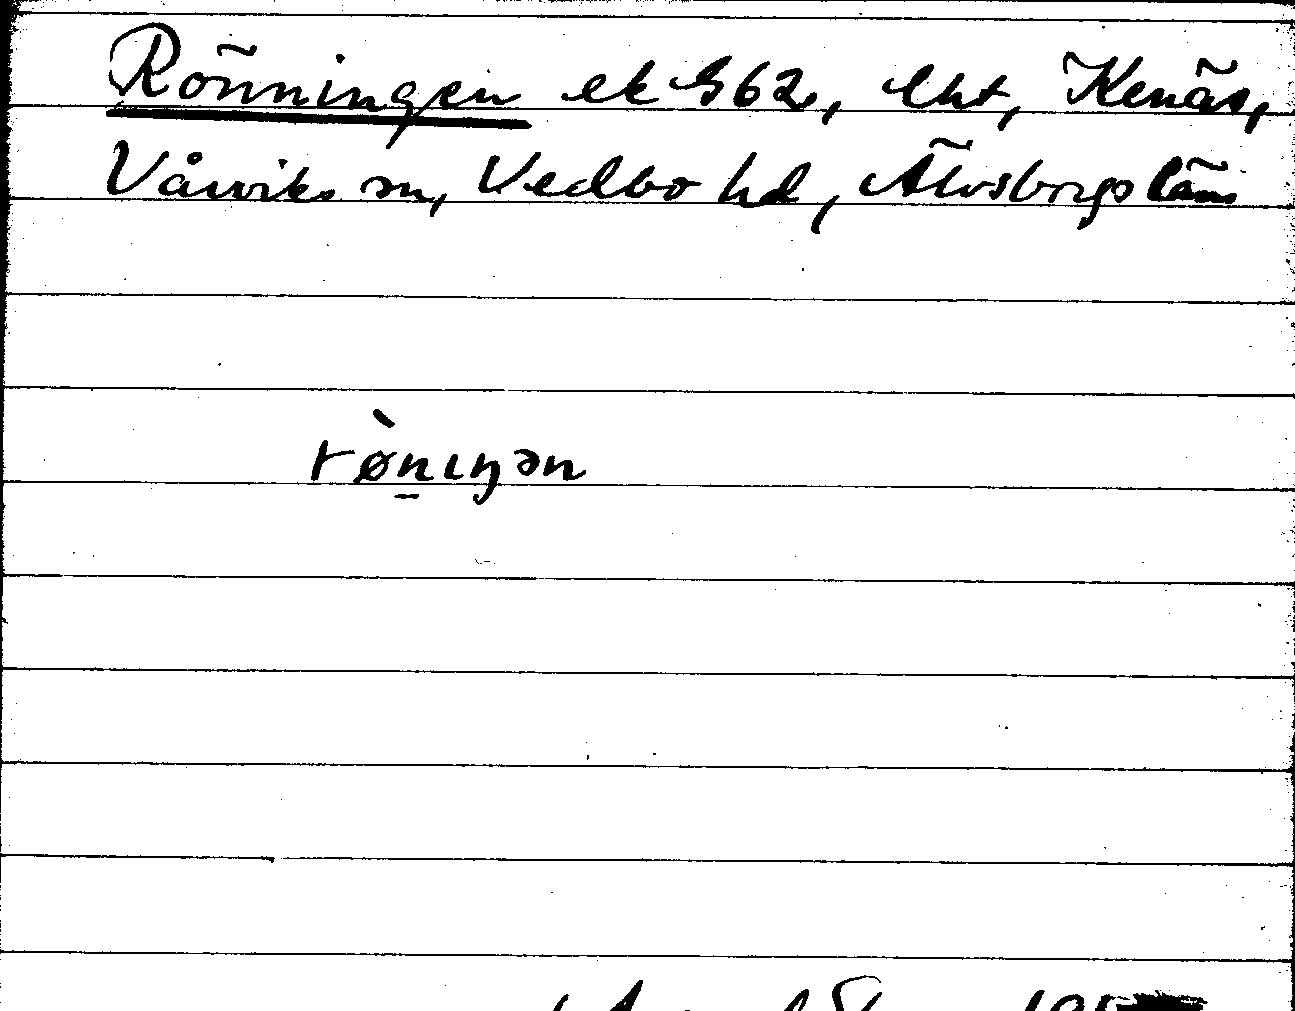 Rönningen ek 962, lht, Kenäs,
Vårviks sn, Vedbo hd, Älvsborgs län
rø̀nıŋən